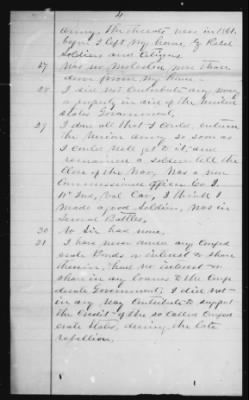 4
Army. The threats was in 1861,
before I left my home, by Rebel
Soldiers and Citizens.
27 Was not molested, more than
driven from my home -
28 I did not Contribute any money
or property in aid of the United
States Government,
29 I done all that I Could, enter
the Union army so soon as
I could well get to it, and
remained a soldier till the
Close of the War, Was a non
Commissioned officer Co. I.
1st Ind, Vol Cav, I think I
made a good Soldier, Was in
Several Battles,
30 No Sir had none,
31 I have never under any Confed
erate Bonds or interest or share
therein, had no interest or
share in any loans to the Confe
derate Government; I did not
in any way Contribute to support
the Credit of the so called Confed
erate States, during the late
rebellion.